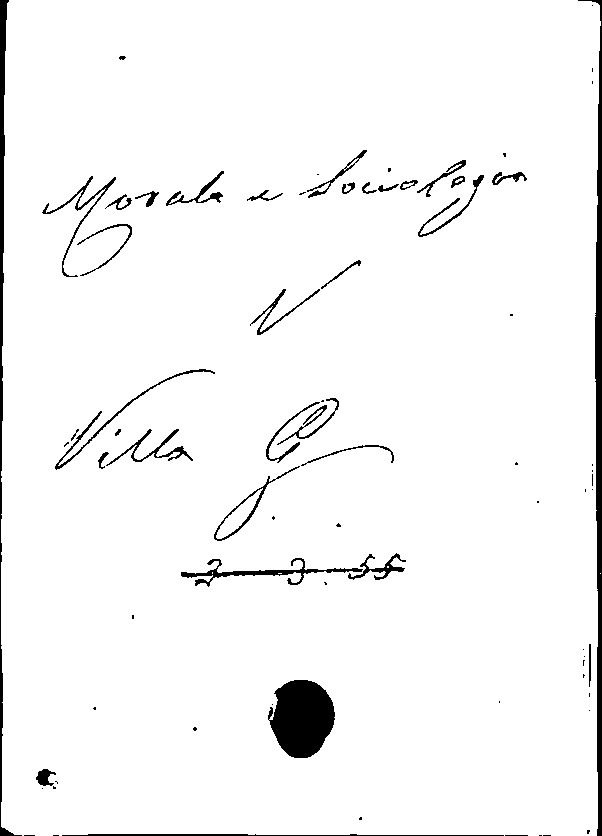 Morale e Sociologia
V
Villa G
2 3 55